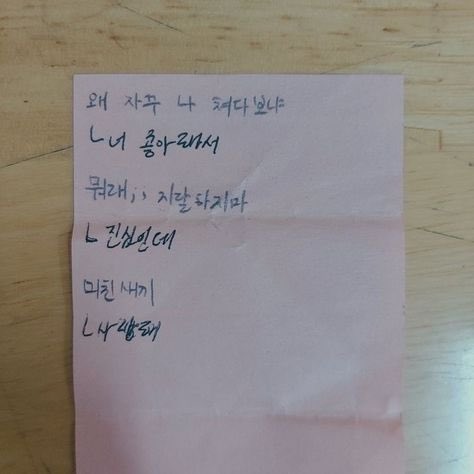 왜 자꾸 나 쳐다보냐
ㄴ너 좋아해서
뭐래;; 지랄하지마
ㄴ진심인데
미친새끼
ㄴ사랑해